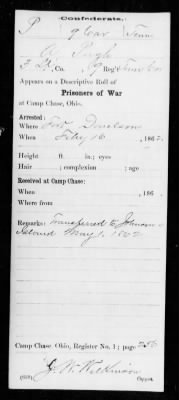 Confederate.
P 9 Cav Tenn
Pugh
Co., 9 Reg't Tenn
Appears on a Descriptive Roll of
Prisoners of War
at Camp Chase, Ohio.
Arrested:
Where Fort Donelson
When Feby 16, 1862.
Height ft. in.; eyes
Hair ; complexion ; age
Received at Camp Chase:
When , 186 .
Where from
Remarks: Transferred to Johnson's
Island May 1. 1862
Camp Chase, Ohio, Register No. 1; page 256
J. W. Wilkinson
Copyist.